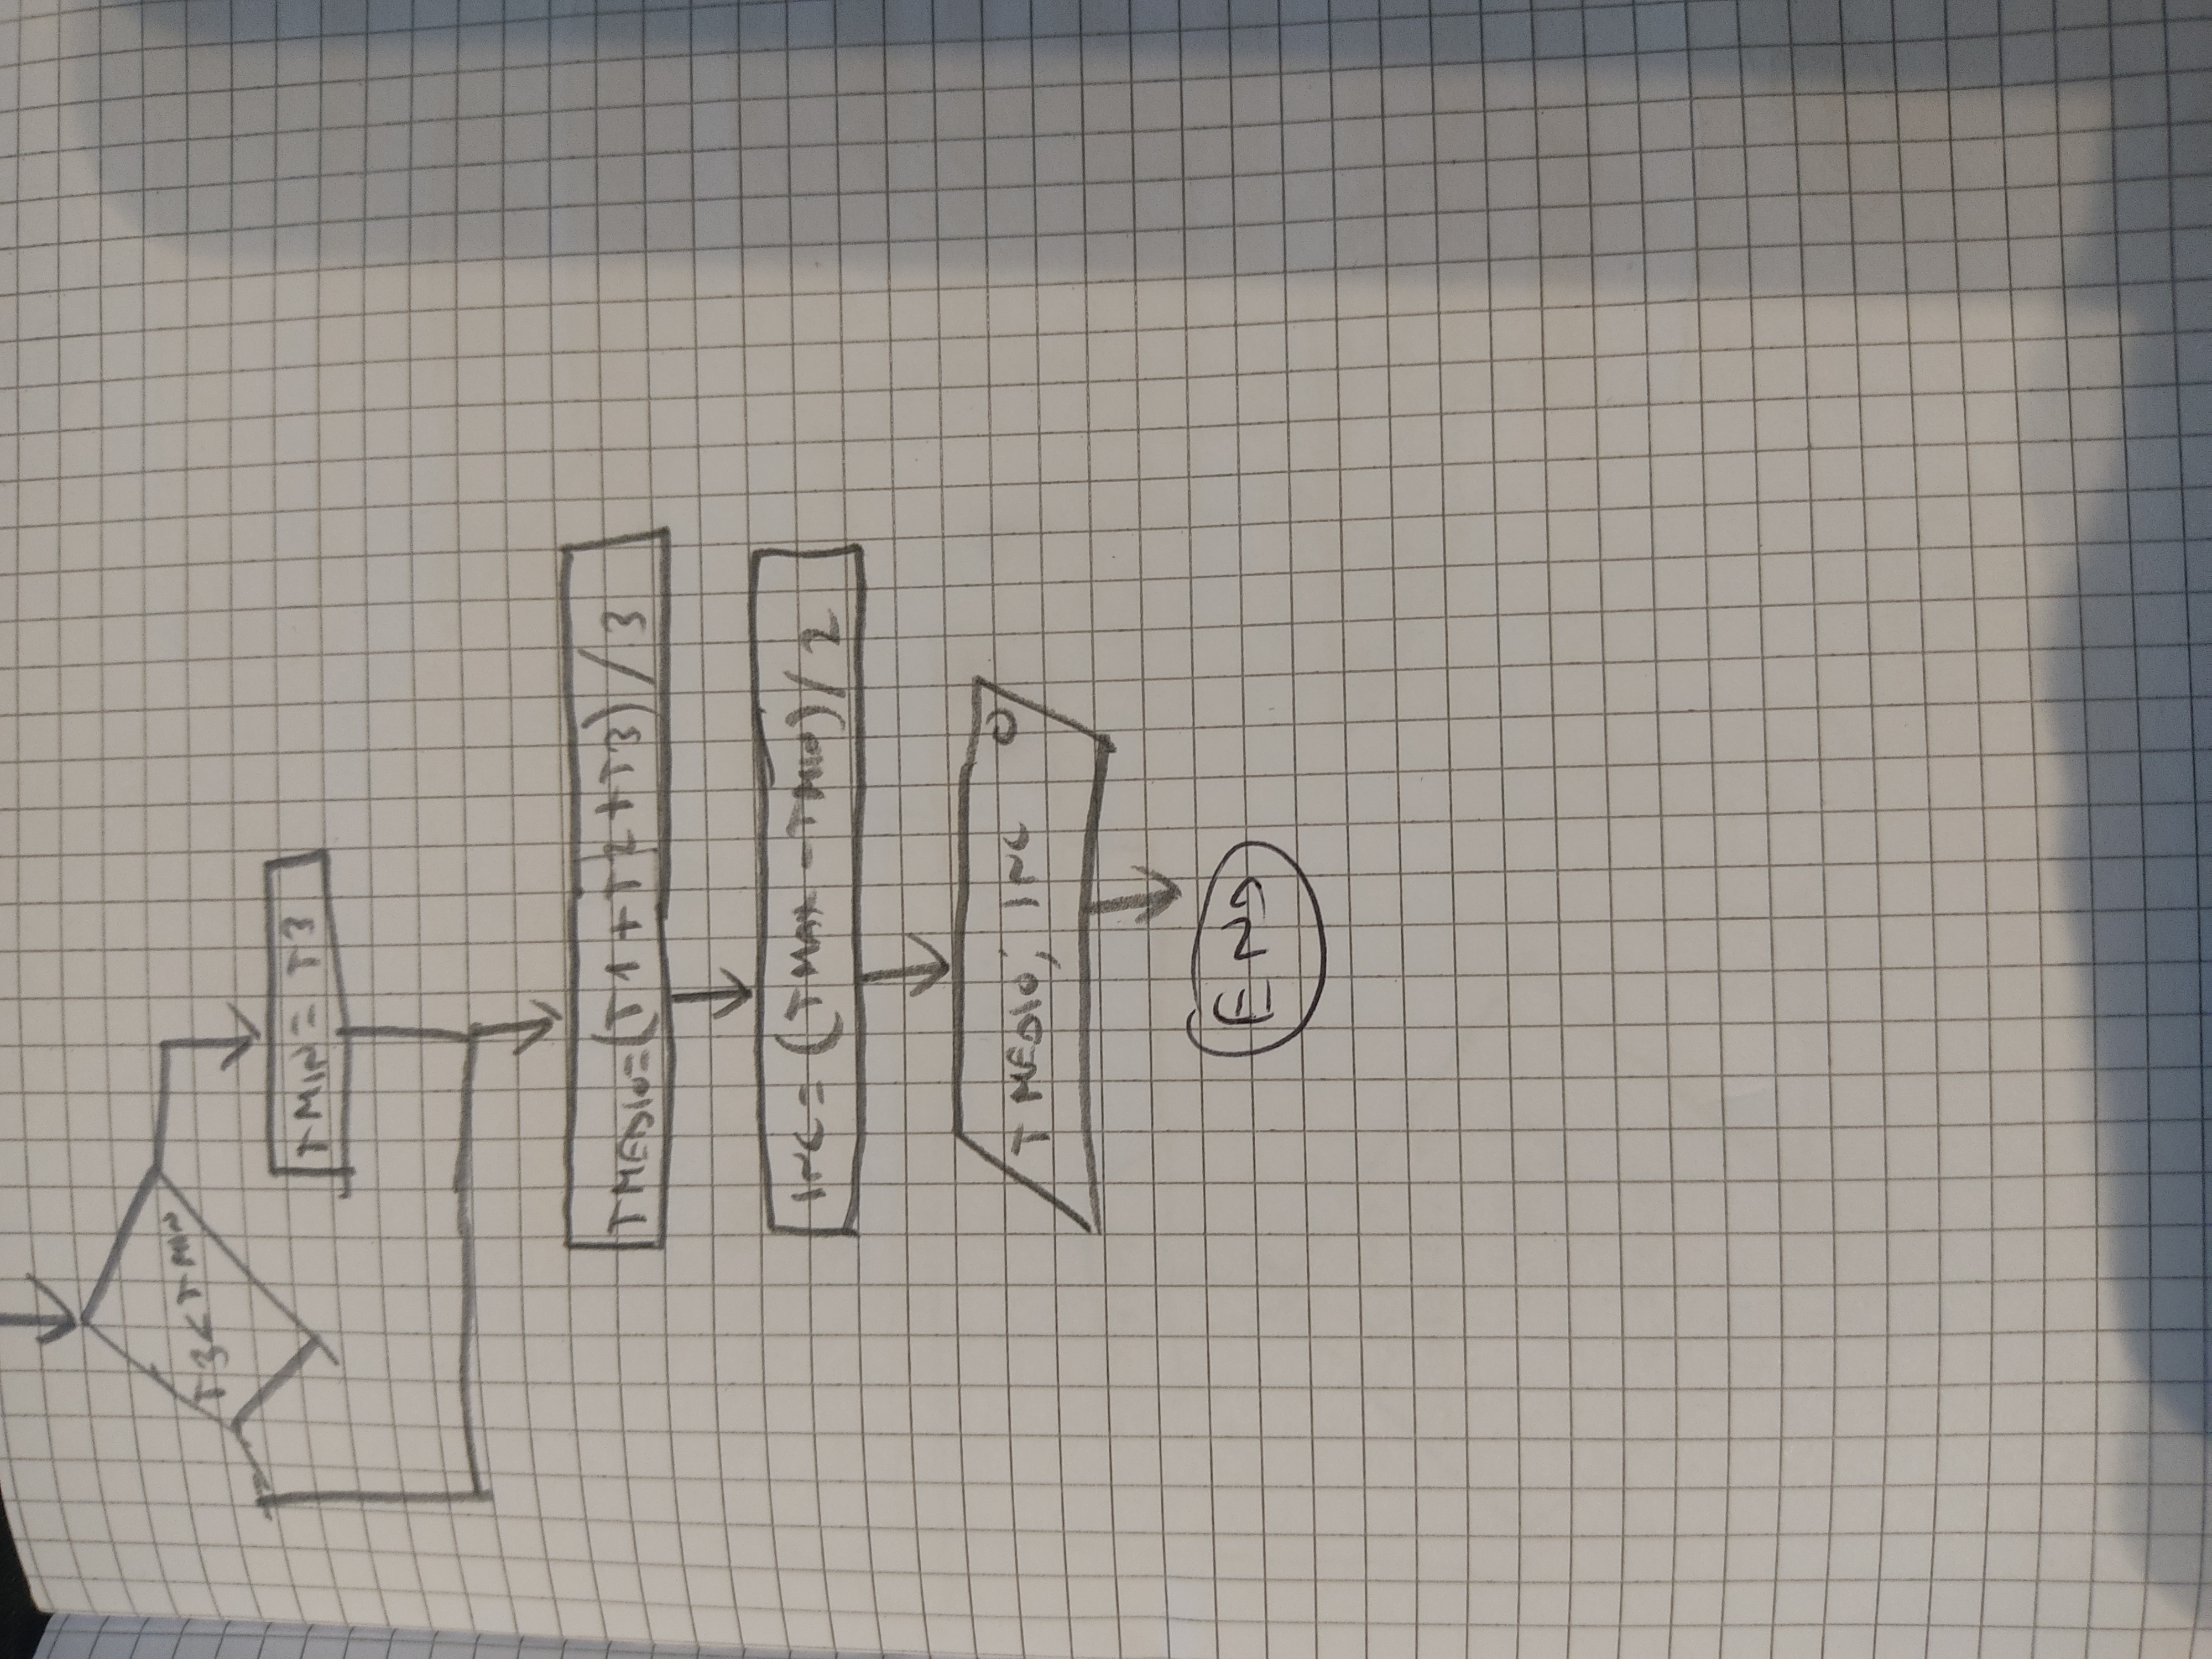 T3<TMIN
TMIN = T3
TMEDIO=(T1+T2+T3)/3
INC = (TMAX - TMIN)/2
TMEDIO; INC O
END